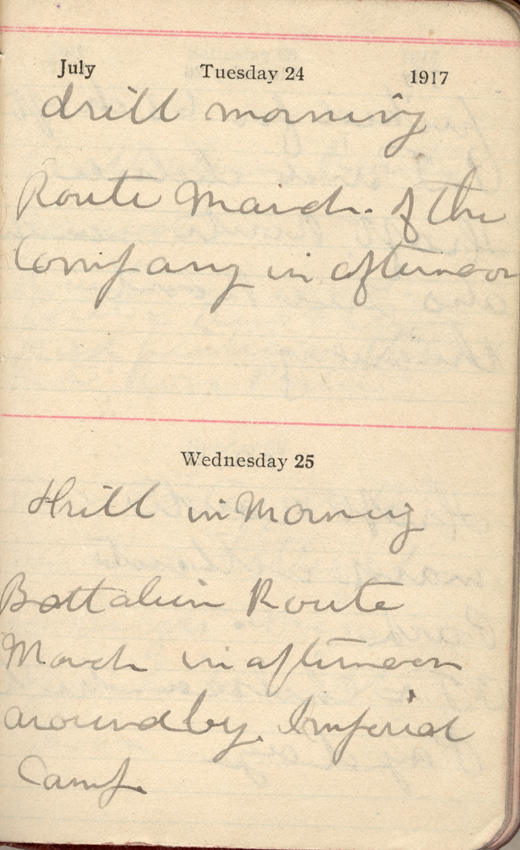 July Tuesday 24 1917
drill morning
Route March. of the
Company in afternoon
Wednesday 25
Drill in Morning
Battalion Route
March in afternoon
around by Imperial
Camp.